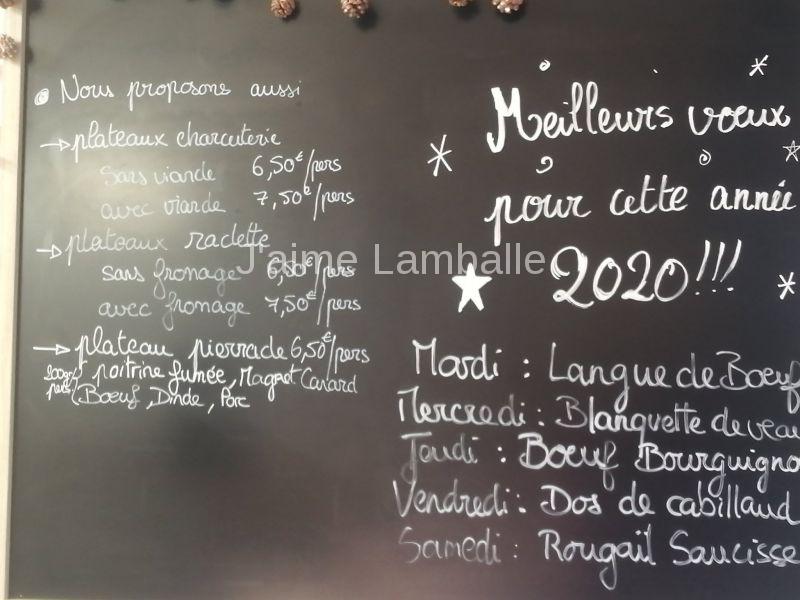 Nous proposons aussi
→ plateaux charcuterie
sans viande 6,50€/pers
avec viande 7,50€/pers
→ plateaux raclette
sans fromage 6,50€/pers
avec fromage 7,50€/pers
→ plateau pierrade 6,50€/pers
poitrine fumée, Magret Canard
Boeuf, Dinde, Porc
J'aime Lamballe
Meilleurs voeux
pour cette année
2020!!!
Mardi : Langue de Boeuf
Mercredi : Blanquette de veau
Jeudi : Boeuf Bourguigno
Vendredi : Dos de cabillaud
Samedi : Rougail Saucisse